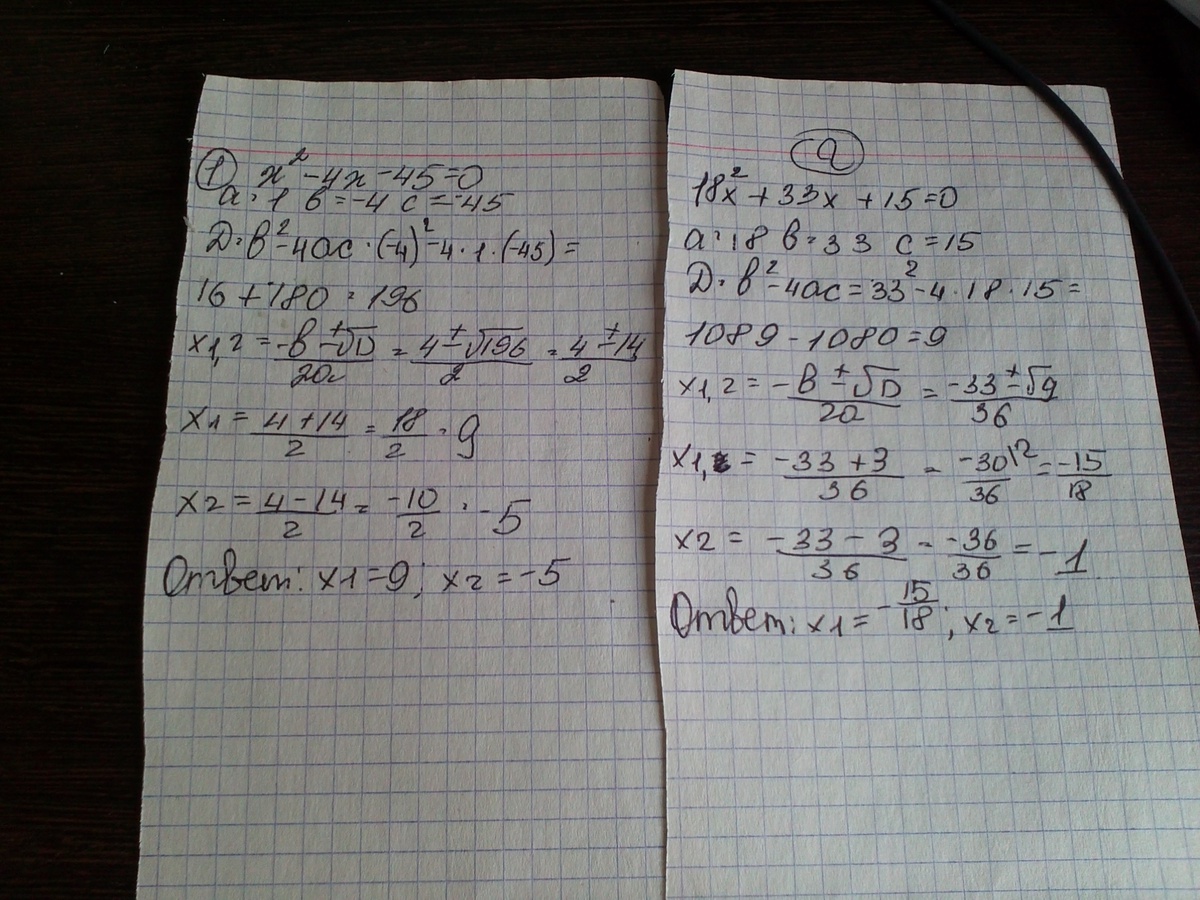 ① x² - 4x - 45 = 0
a = 1 b = -4 c = -45
D = b² - 4ac = (-4)² - 4 · 1 · (-45) =
16 + 180 = 196
x1,2 = (-b ± √D)/(2a) = (4 ± √196)/2 = (4 ± 14)/2
x1 = (4 + 14)/2 = 18/2 = 9
x2 = (4 - 14)/2 = -10/2 = -5
Ответ: x1 = 9; x2 = -5
②
18x² + 33x + 15 = 0
a = 18 b = 33 c = 15
D = b² - 4ac = 33² - 4 · 18 · 15 =
1089 - 1080 = 9
x1,2 = (-b ± √D)/(2a) = (-33 ± √9)/36
x1 = (-33 + 3)/36 = -30/36 |2 = -15/18
x2 = (-33 - 3)/36 = -36/36 = -1
Ответ: x1 = -15/18; x2 = -1